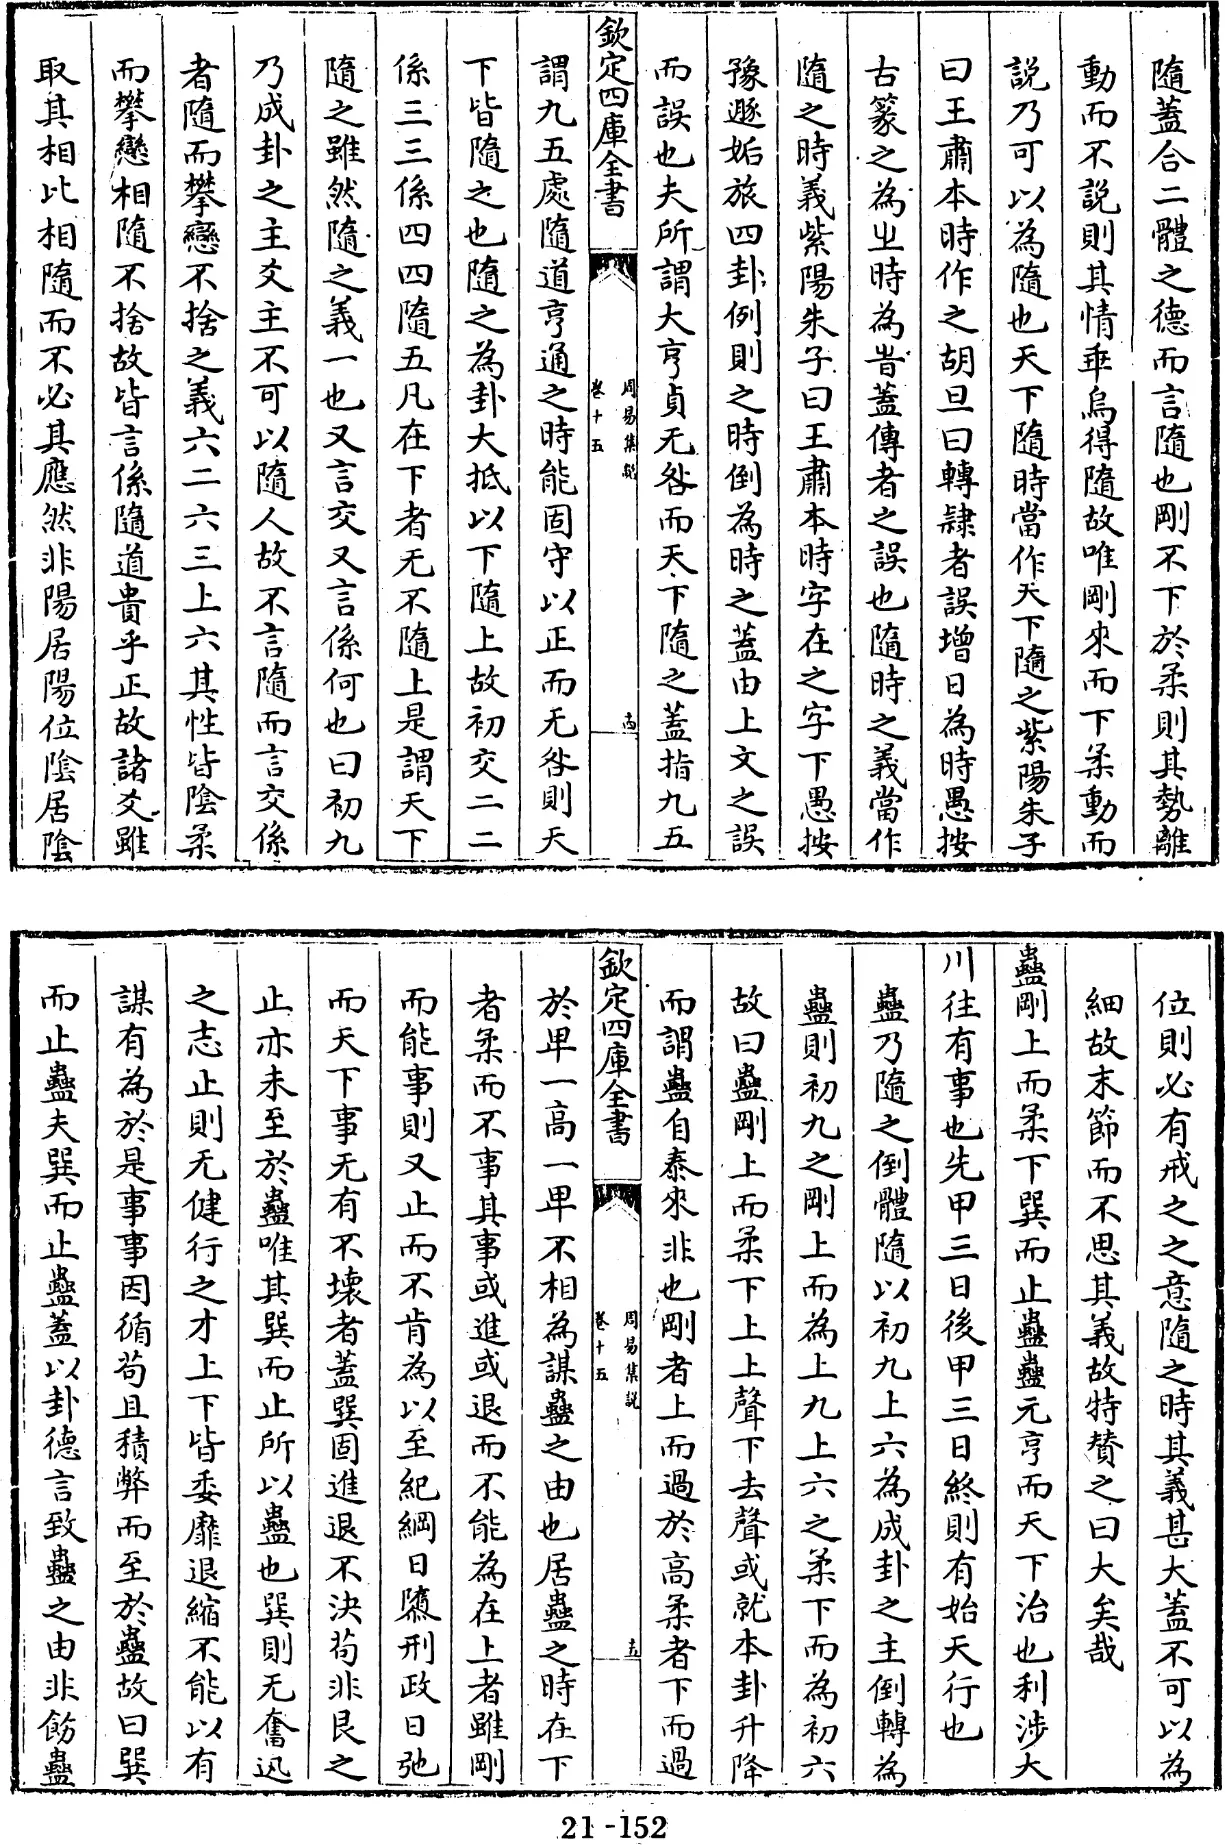 隨蓋合二體之德而言隨也剛不下於柔則其勢離
動而不說則其情乖烏得隨故唯剛來而下柔動而
說乃可以為隨也天下隨時當作天下隨之紫陽朱子
曰王肅本時作之胡旦曰轉隷者誤增日為時愚按
古篆之為㞢時為旹蓋傳者之誤也隨時之義當作
隨之時義紫陽朱子曰王肅本時字在之字下愚按
豫遯姤旅四卦例則之時倒為時之蓋由上文之誤
而誤也夫所謂大亨貞无咎而天下隨之蓋指九五
欽定四庫全書
周易集說
卷十五
十四
謂九五處隨道亨通之時能固守以正而无咎則天
下皆隨之也隨之為卦大抵以下隨上故初交二二
係三三係四四隨五凡在下者无不隨上是謂天下
隨之雖然隨之義一也又言交又言係何也曰初九
乃成卦之主爻主不可以隨人故不言隨而言交係
者隨而攀戀不捨之義六二六三上六其性皆陰柔
而攀戀相隨不捨故皆言係隨道貴乎正故諸爻雖
取其相比相隨而不必其應然非陽居陽位陰居陰
位則必有戒之之意隨之時其義甚大蓋不可以為
細故末節而不思其義故特賛之曰大矣哉
蠱剛上而柔下巽而止蠱蠱元亨而天下治也利涉大
川往有事也先甲三日後甲三日終則有始天行也
蠱乃隨之倒體隨以初九上六為成卦之主倒轉為
蠱則初九之剛上而為上九上六之柔下而為初六
故曰蠱剛上而柔下上上聲下去聲或就本卦升降
而謂蠱自泰來非也剛者上而過於高柔者下而過
欽定四庫全書
周易集說
卷十五
十五
於卑一高一卑不相為謀蠱之由也居蠱之時在下
者柔而不事其事或進或退而不能為在上者雖剛
而能事則又止而不肯為以至紀綱日隳刑政日弛
而天下事无有不壞者蓋巽固進退不決苟非艮之
止亦未至於蠱唯其巽而止所以蠱也巽則无奮迅
之志止則无健行之才上下皆委靡退縮不能以有
謀有為於是事事因循苟且積弊而至於蠱故曰巽
而止蠱夫巽而止蠱蓋以卦德言致蠱之由非飭蠱
21-152